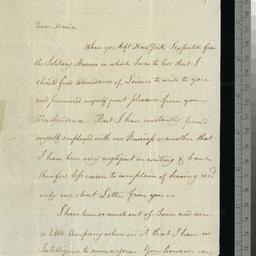 Dear Maria
When you left New York I expected from
the Solitary Manner in which I was to live that I
should find Abundance of Leisure to write to you
and promised myself great pleasure from your
Correspondence. But I have constantly found
myself employed with one Business or another that
I have been very negligent in writing & have
therefore less reason to complain of having recd
only one short Letter from you.
I have been so much out of Town and seen
so little Company when in it that I have no
Intelligence to amuse you. You however can